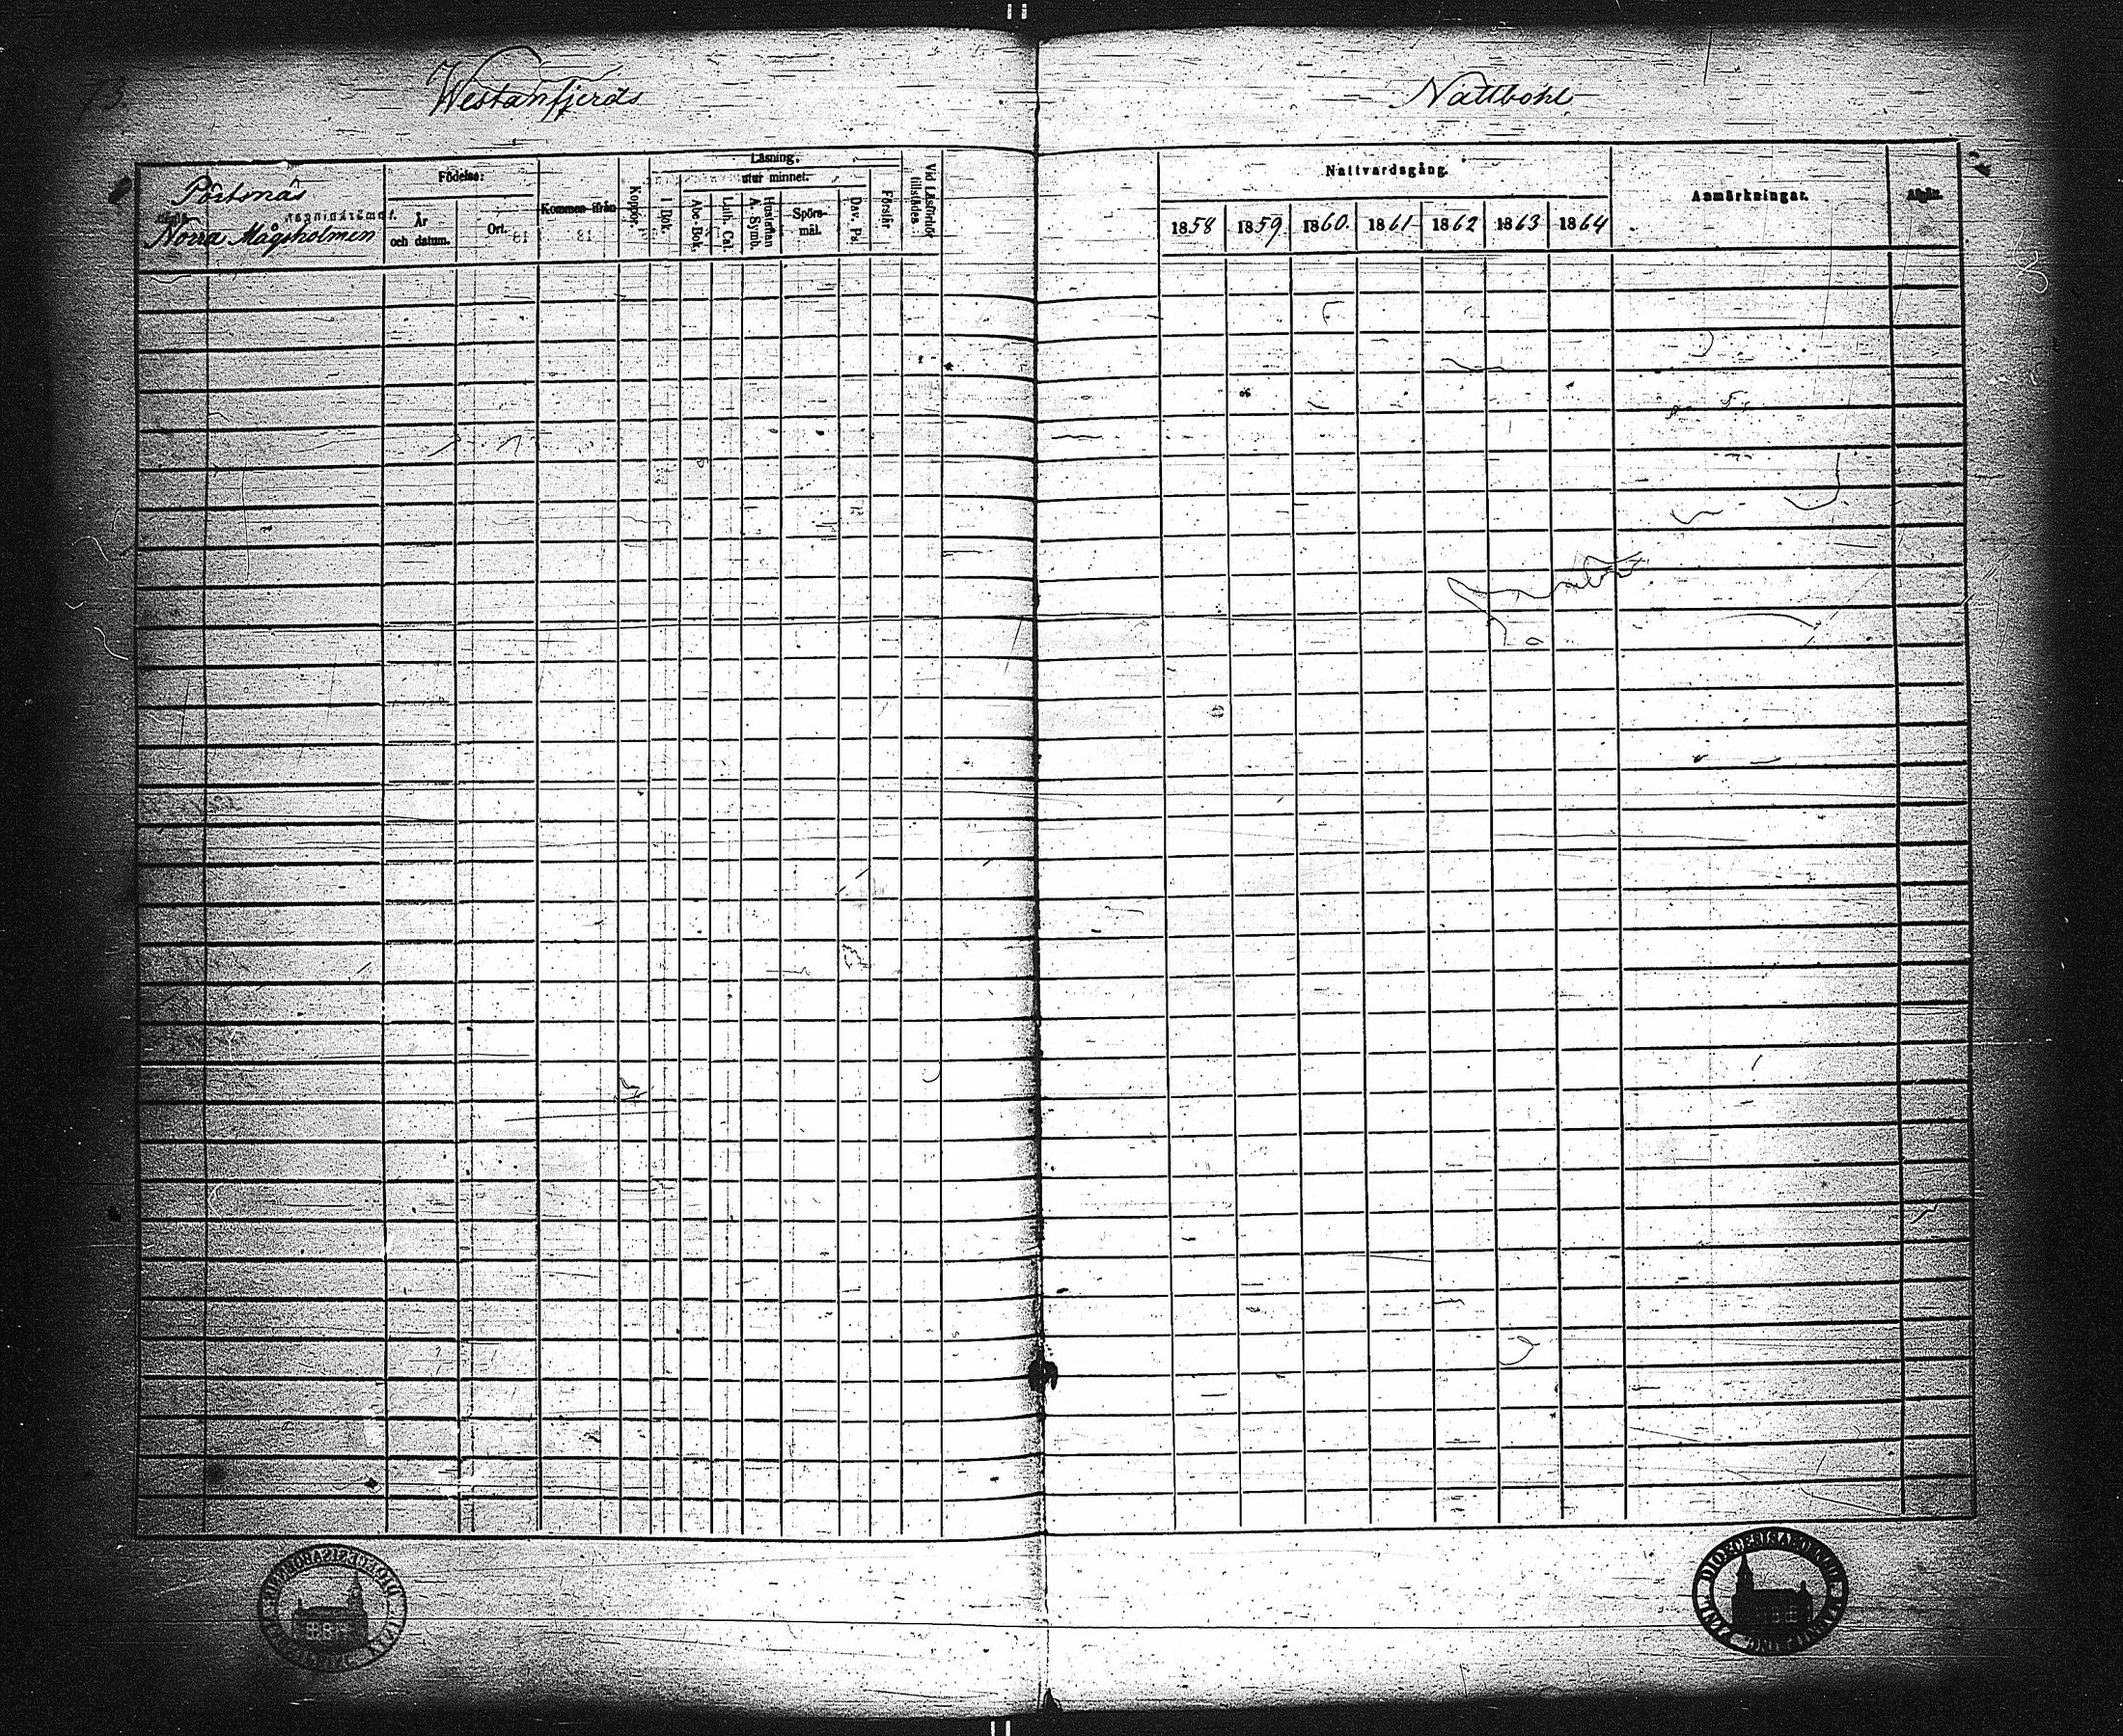 73.
Westanfjerds
Nattbohl
Pörtsnäs
Norra Mågsholmen
Födelse:
År och datum.
Ort.
Kommen ifrån
Koppor.
Läsning,
utur minnet.
I Bok.
Abc-Bok.
Luth. Cat.
Hustaflan A. Symb.
Spörs-mål.
Dav. Ps.
Förstår
Vid Läsförhör tillstädes.
Nattvardsgång.
1858 1859 1860. 1861 1862 1863 1864
Anmärkningar.
Afgått.